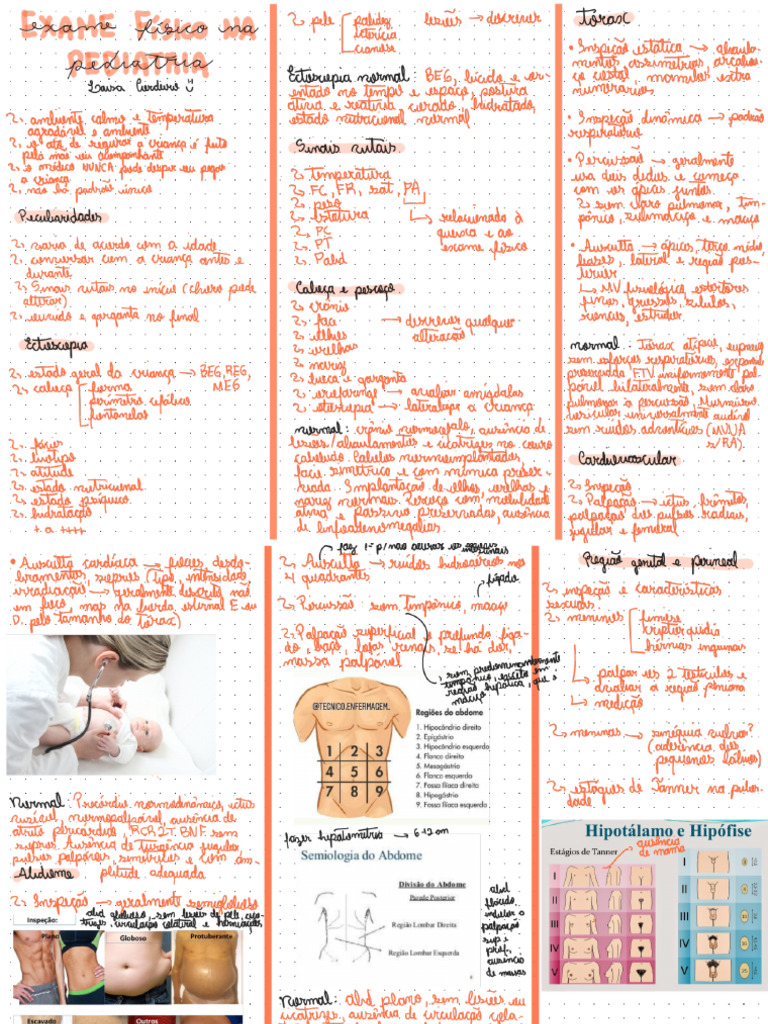 exame físico na
pediatria
Laisa Cordeiro
ambiente calmo e temperatura
agradável e ambiente
o ato de segurar a criança é feito
pela mãe ou acompanhante
o médico NUNCA pode despir ou pegar
a criança
não há padrão único
Peculiaridades
varia de acordo com a idade
conversar com a criança antes e
durante
Sinais vitais no início (choro pode
alterar)
ouvido e garganta no final
Ectoscopia
estado geral da criança → BEG, REG,
MEG
cabeça forma
perímetro cefálico
fontanelas
fácies
biotipo
atitude
estado nutricional
estado psíquico
hidratação
+ a ++++
pele palidez
icterícia
cianose
lesões → descrever
Ectoscopia normal: BEG, lúcido e ori-
entado no tempo e espaço, postura
ativa e reativa, corado, hidratado,
estado nutricional normal
Sinais vitais
temperatura
FC, FR, sat, PA
peso
estatura
PC
PT
Pabd
relacionado à
queixa e ao
exame físico
Cabeça e pescoço
crânio
face
olhos
orelhas
nariz
boca e garganta
→ descrever qualquer
alteração
orofaringe → avaliar amígdalas
otoscopia → lateralizar a criança
normal: crânio normocefalo, ausência de
lesões/abaulamentos e cicatrizes no couro
cabeludo. Cabelos normoimplantados,
face simétrica e com mímica preser-
vada. Implantação de olhos, orelhas e
nariz normais. Pescoço com mobilidade
ativa e passiva preservadas, ausência
de linfoadenomegalias.
tórax
Inspeção estática → abaula-
mentos, assimetrias, arcabou-
ço costal, mamilos extra
numerários
Inspeção dinâmica → padrão
respiratório
Percussão → geralmente
usa dois dedos e começa
com os ápices juntos
som claro pulmonar, tim-
pânico, submaciço e maciço
Ausculta → ápices, terço médio
bases, lateral e região pos-
terior
MV fisiológico, estertores
finos, grossos, sibilos,
roncos, estridor
normal: Tórax atípico, eupneico
sem esforços respiratórios, expansão
preservada, FTV uniformemente pal-
pável bilateralmente, som claro
pulmonar à percussão. Murmúrio
vesicular universalmente audível
sem ruídos adventícios (MVUA
s/RA).
Cardiovascular
Inspeção
Palpação → ictus, frêmitos,
palpação dos pulsos radiais,
jugular e femoral
Ausculta cardíaca → focos, desdo-
bramentos, sopros (tipo, intensidade,
irradiação → geralmente descrito não
em foco, mas na borda esternal E ou
D. pelo tamanho do tórax)
Normal: Precórdio normodinâmico, ictus
visível, normopalpável, ausência de
atrito pericárdico, RCR2T BNF sem
sopros. Ausência de turgência jugular,
pulsos palpáveis, simétricos e com am-
plitude adequada
Abdome
Inspeção → geralmente semigloboso
abd globoso, sem lesões de pele, cica-
trizes, circulação colateral e herniações
Inspeção:
Plano
Globoso
Protuberante
Escavado
Outros
faz 1º p/ não alterar os ruídos
intestinais
Ausculta → ruídos hidroaéreos nos
4 quadrantes
fígado
Percussão: som timpânico, maciço
Palpação superficial e profunda fíga-
do, baço, lojas renais, se há dor,
massa palpável
som predominantemente
timpânico, exceto em
região hepática, que é
maciço
@TECNICO.ENFERMAGEM_
1 2 3
4 5 6
7 8 9
Regiões do abdome
1. Hipocôndrio direito
2. Epigástrio
3. Hipocôndrio esquerdo
4. Flanco direito
5. Mesogástrio
6. Flanco esquerdo
7. Fossa Ilíaca direita
8. Hipogástrio
9. Fossa Ilíaca esquerda
fazer hepatimetria → 6-12 cm
Semiologia do Abdome
Divisão do Abdome
Parede Posterior
Região Lombar Direita
Região Lombar Esquerda
abd
flácido,
indolor à
palpação
sup e
prof,
ausência
de massas
Normal: abd plano, sem lesões ou
cicatrizes, ausência de circulação cola-
Região genital e perineal
inspeção e características
sexuais
meninos fimose
criptorquidia
hérnias inguinais
palpar os 2 testículos e
avaliar a região peniana
medição
meninas → sinéquia vulvar?
(aderência dos
pequenos lábios)
estágios de Tanner na puber-
dade
Hipotálamo e Hipófise
Estágios de Tanner
ausência
de mama
I
II
III
IV
V
I
II
III
IV
V